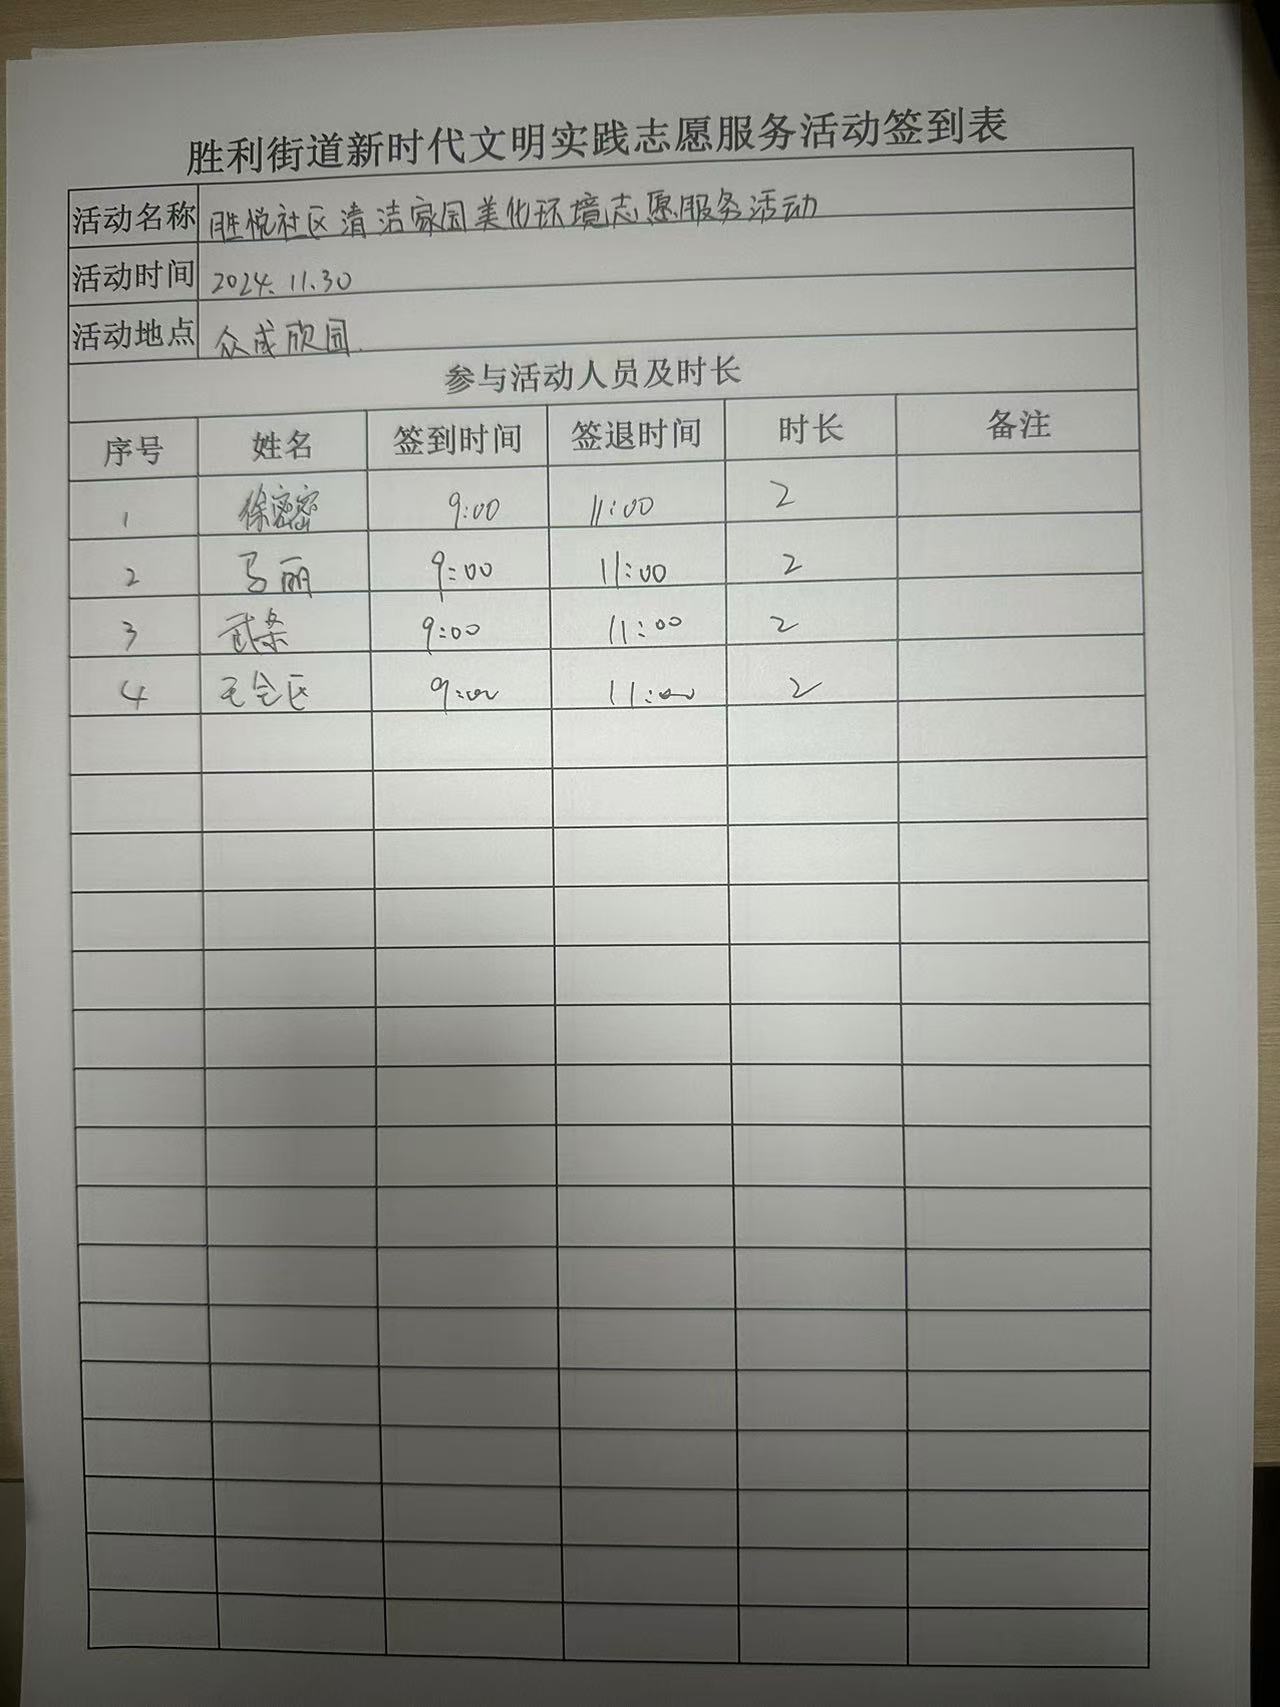 胜利街道新时代文明实践志愿服务活动签到表
活动名称 胜悦社区清洁家园美化环境志愿服务活动
活动时间 2024.11.30
活动地点 众成欣园
参与活动人员及时长
序号 姓名 签到时间 签退时间 时长 备注
1 徐密密 9:00 11:00 2
2 马丽 9:00 11:00 2
3 9:00 11:00 2
4 9:00 11:00 2